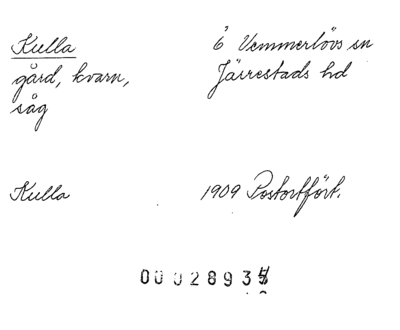 Kulla
gård, kvarn,
såg
Ö Vemmerlövs sn
Järrestads hd
Kulla
1909 Postortfört.